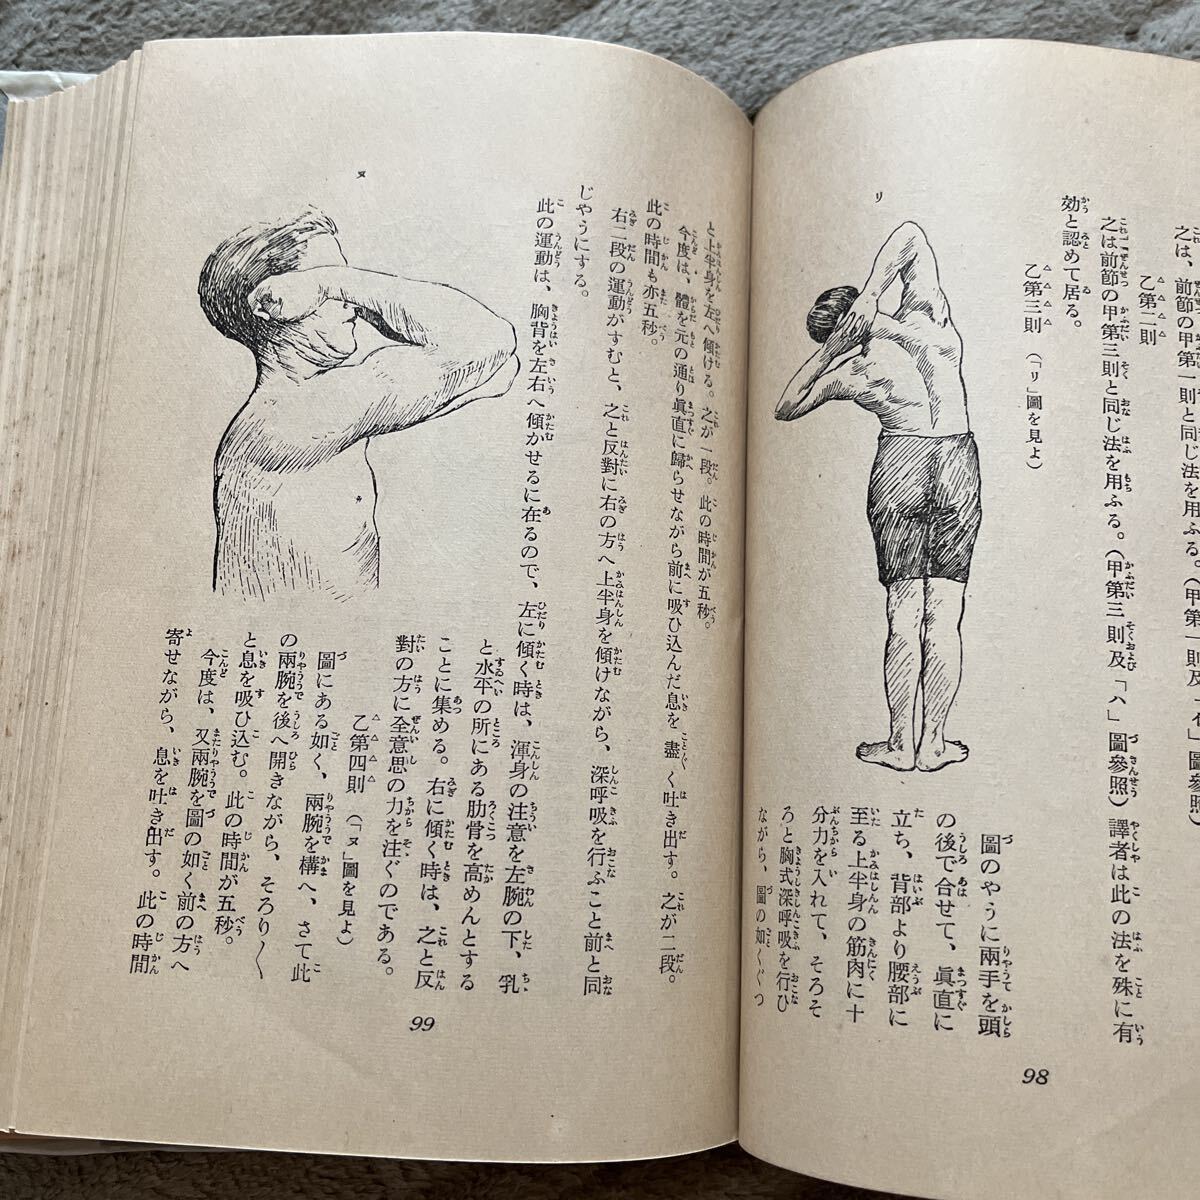 之は、前節の甲第一則と同じ法を用ふる。(甲第一則及「イ」圖參照)
乙第二則
之は前節の甲第三則と同じ法を用ふる。(甲第三則及「ハ」圖參照)譯者は此の法を殊に有
効と認めて居る。
乙第三則 (「リ」圖を見よ)
リ
圖のやうに兩手を頭
の後で合せて、眞直に
立ち、背部より腰部に
至る上半身の筋肉に十
分力を入れて、そろそ
ろと胸式深呼吸を行ひ
ながら、圖の如くぐつ
98
と上半身を左へ傾ける。之が一段。此の時間が五秒。
今度は、體を元の通り眞直に歸らせながら前に吸ひ込んだ息を盡く吐き出す。之が二段。
此の時間も亦五秒。
右二段の運動がすむと、之と反對に右の方へ上半身を傾けながら、深呼吸を行ふこと前と同
じやうにする。
此の運動は、胸背を左右へ傾かせるに在るので、左に傾く時は、渾身の注意を左腕の下、乳
と水平の所にある肋骨を高めんとする
ことに集める。右に傾く時は、之と反
對の方に全意思の力を注ぐのである。
乙第四則 (「ヌ」圖を見よ)
ヌ
圖にある如く、兩腕を構へ、さて此
の兩腕を後へ開きながら、そろり〱
と息を吸ひ込む。此の時間が五秒。
今度は、又兩腕を圖の如く前の方へ
寄せながら、息を吐き出す。此の時間
99